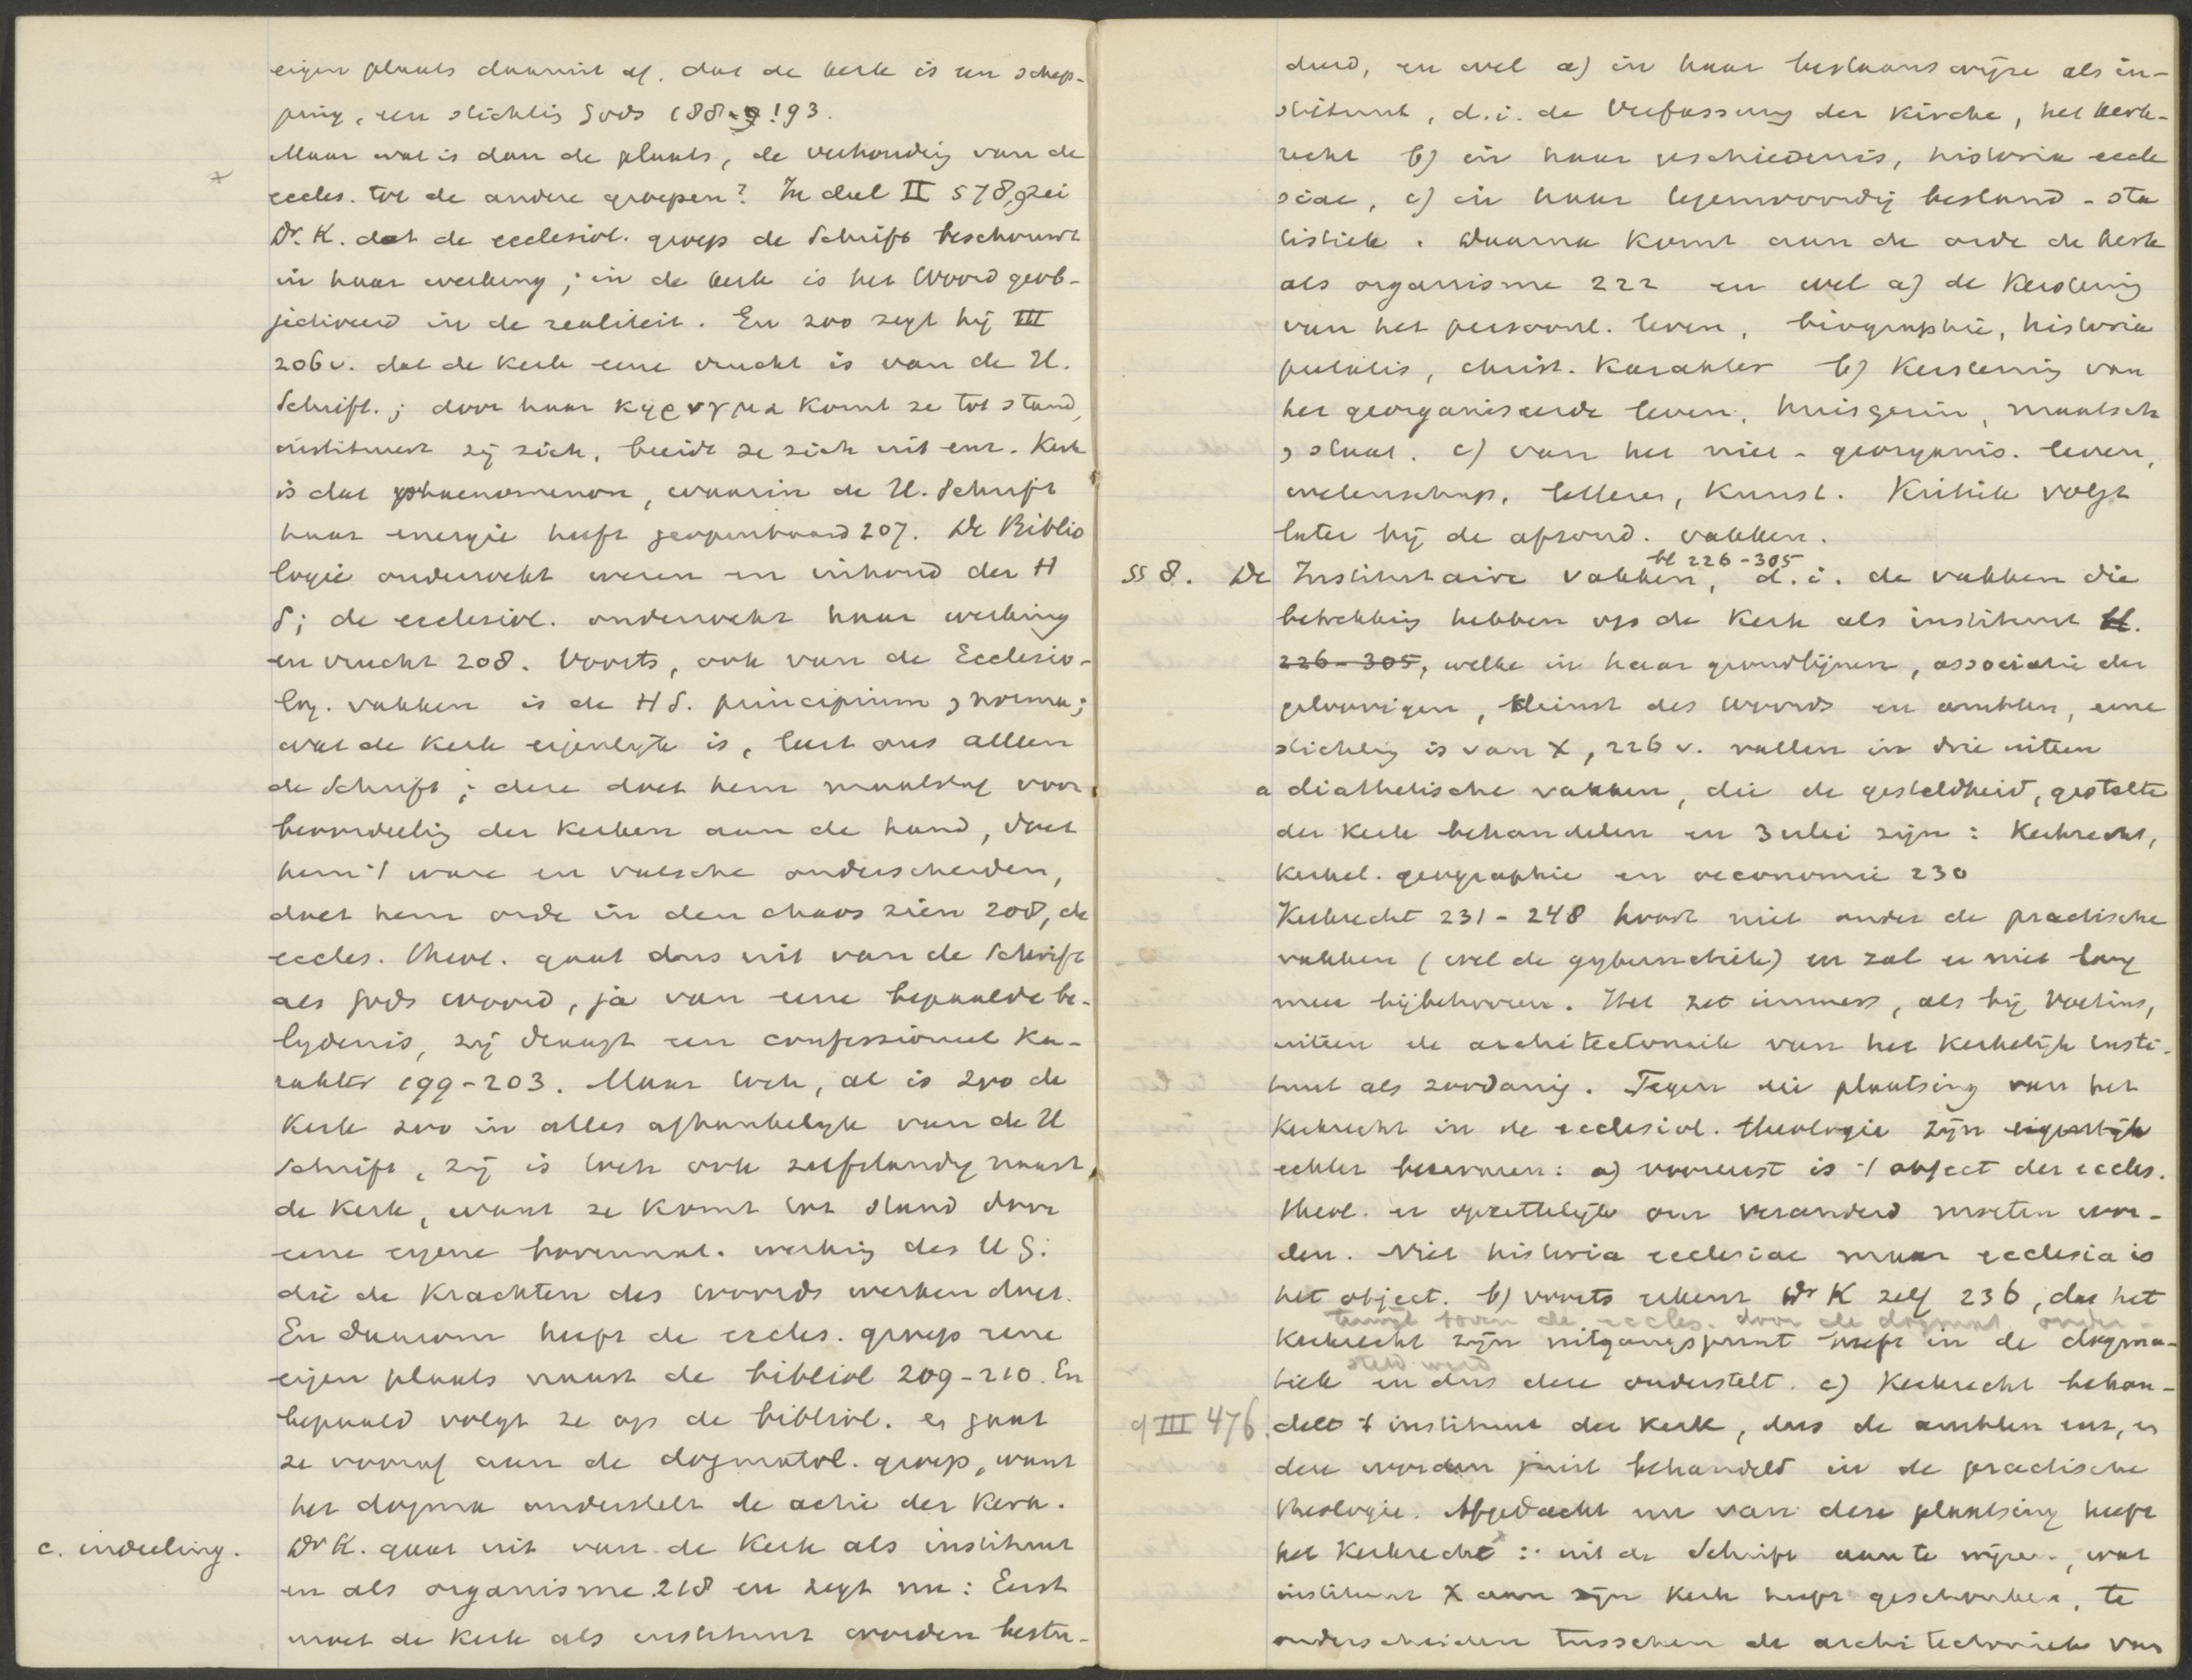 eigen plaats daarmit af. dat de kerk is een schep-
ping, een stichting Gods 188-9! 93.
Maar wat is dan de plaats, de verhouding van de
eccles. tot de andere groepen? In deel II 578, zei
Dr. K. dat de ecclesiol. groep de Schrift beschouwt
in haar werking; in de kerk is het Woord geob-
jectiveerd in de realiteit. En zoo zegt hij III
206 v. dat de Kerk eene vrucht is van de H.
Schrift.; door haar κηρυγμα komt ze tot stand,
institueert zij zich, breidt ze zich uit enz. Kerk
is dat phaenomenon, waarin de H. Schrift
haar energie heeft geopenbaard 207. De Biblio
logie onderzoekt wezen en inhoud der H
S; de ecclesiol. onderzoekt haar werking
en vrucht 208. Voorts, ook van de Ecclesio-
log. vakken is de H S. principium, norma;
wat de Kerk eigenlijk is, leert ons alleen
de Schrift; deze doet hem maatstaf voor
beoordeeling der Kerken aan de hand, doet
hem 't ware en valsche onderscheiden,
doet hem orde in den chaos zien 208, de
eccles. theol. gaat dus uit van de Schrift
als Gods woord, ja van eene bepaalde be-
lydenis, zij draagt een confessioneel Ka-
rakter 199-203. Maar toch, al is zoo de
Kerk zoo in alles afhankelyk van de H
Schrift, zij is toch ook zelfstandig naast
de Kerk, want ze komt tot stand door
eene eigene bovennat. werking des H G.
die de Krachten des woords werken doet.
En daarom heeft de eccles. groep eene
eigen plaats naast de bibliol 209-210. En
bepaald volgt ze op de bibliol. en gaat
ze vooraf aan de dogmatol. groep, want
het dogma onderstelt de actie der Kerk.
c. indeeling. Dr K. gaat uit van de Kerk als instituut
en als organisme 218 en zegt nu: Eerst
moet de Kerk als instituut worden bestu-
deerd, en wel a) in haar bestaanswijze als in-
stituut, d.i. de Verfassung der Kirche, het kerk-
recht b) in haar geschiedenis, historia eccle
siae, c) in haar tegenwoordig bestand - sta
tistiek. Daarna komt aan de orde de kerk
als organisme 222 en wel a) de Kerstening
van het persoonl. leven, biographie, historia
pietatis, christ. Karakter b) Kerstening van
het georganiseerde leven, huisgezin, maatsch
, staat. c) van het niet-georganis. leven,
wetenschap, letteren, Kunst. Kritiek volgt
later bij de afzond. vakken.
bl 226-305
§§ 8. De Institutaire vakken, d.i. de vakken die
betrekking hebben op de Kerk als instituut bl.
226-305, welke in haar grondlijnen, associatie der
geloovigen, dienst des Woords en ambten, eene
stichting is van X, 226 v. vallen in drie uiteen
a diathetische vakken, die de gesteldheid, gestalte
der Kerk behandelen en 3erlei zijn: Kerkrecht,
Kerkel. geographie en oeconomie 230
Kerkrecht 231-248 hoort niet onder de practische
vakken (wel de gybernetiek) en zal er niet lang
meer bijbehooren. Het zet immers, als bij Voetius,
uiteen de architectoniek van het Kerkelijk insti-
tuut als zoodanig. Tegen die plaatsing van het
Kerkrecht in de ecclesiol. theologie zijn eigenlijk
echter bezwaren: a) vooreerst is 't object der eccles.
theol. er opzettelijk om veranderd moeten wor-
den. Niet historia ecclesiae maar ecclesia is
het object. b) voorts erkent Dr K zelf 236, dat het
terwijl boven de eccles. door de dogmat. onder-
Kerkrecht zijn uitgangspunt heeft in de dogma-
steld werd
tiek en dus deze onderstelt. c) Kerkrecht behan-
cf III 476. delt 't instituut der Kerk, dus de ambten enz, en
deze worden juist behandeld in de practische
theologie. Afgedacht nu van deze plaatsing heeft
het Kerkrecht: uit de Schrift aan te wijzen, wat
instituut X aan zijn Kerk heeft geschonken, te
onderscheiden tusschen de architectoniek van